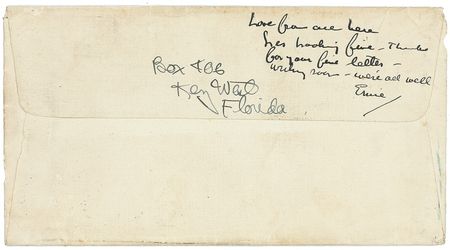 Love from all here
looking fine - Thanks
for your fine letter -
writing soon - we're all well
Ernie
Box 406
Key West
Florida